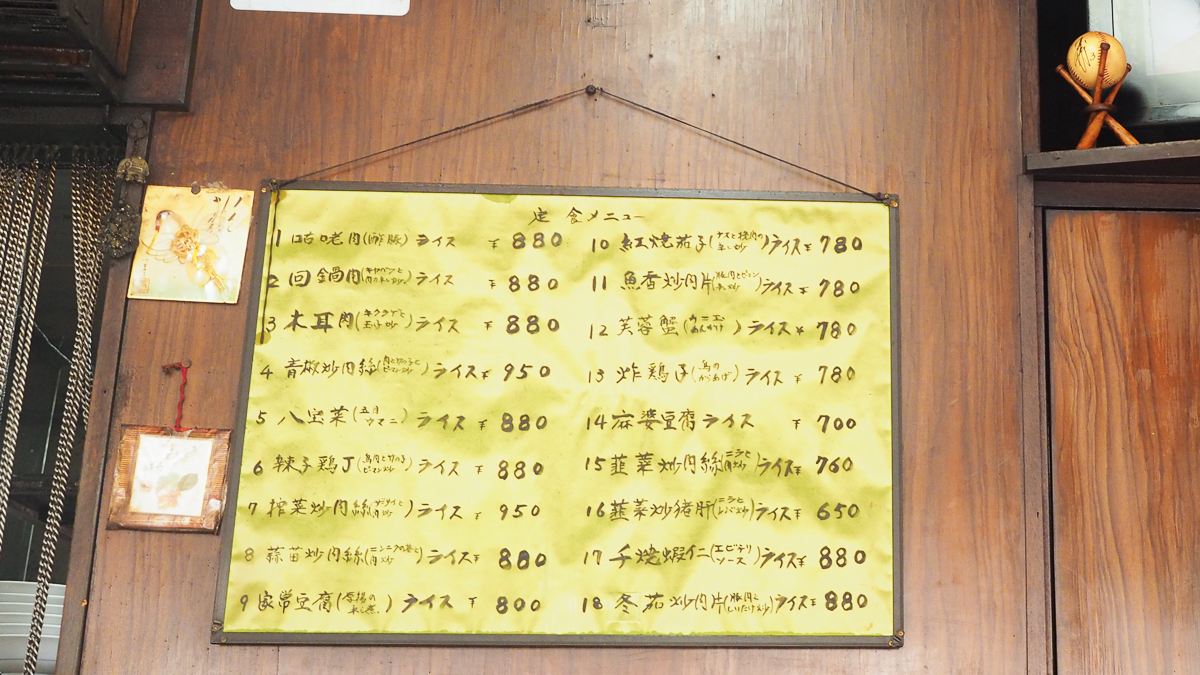 定食メニュー
1 咕咾肉(酢豚)ライス ¥880
2 回鍋肉(キャベツと肉のみそ炒め)ライス ¥880
3 木耳肉(キクラゲと玉子炒)ライス ¥880
4 青椒炒肉絲(肉と竹の子とピーマン炒)ライス ¥950
5 八宝菜(五目ウマニ)ライス ¥880
6 辣子鶏丁(鳥肉と竹の子ピーマン炒)ライス ¥880
7 搾菜炒肉絲(ザーサイと肉炒)ライス ¥950
8 蒜苗炒肉絲(ニンニクの芽と肉炒)ライス ¥880
9 家常豆腐()ライス ¥800
10 紅焼茄子(ナスと挽肉の)ライス ¥780
11 魚香炒肉片(豚肉とピーマン)ライス ¥780
12 芙蓉蟹(カニ玉あんかけ)ライス ¥780
13 炸鶏子(鳥のからあげ)ライス ¥780
14 麻婆豆腐ライス ¥700
15 韮菜炒肉絲(ニラと肉炒)ライス ¥760
16 韮菜炒猪肝(ニラとレバ炒)ライス ¥650
17 干焼蝦仁(エビチリソース)ライス ¥880
18 冬茹炒肉片(豚肉としいたけ炒)ライス ¥880